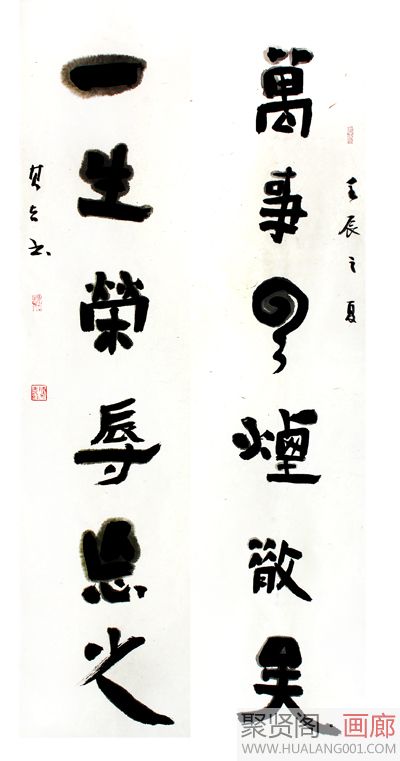 壬辰之夏
萬事云煙散矣
一生榮辱忘之
聚贤阁·画廊
WWW.HUALANG001.COM